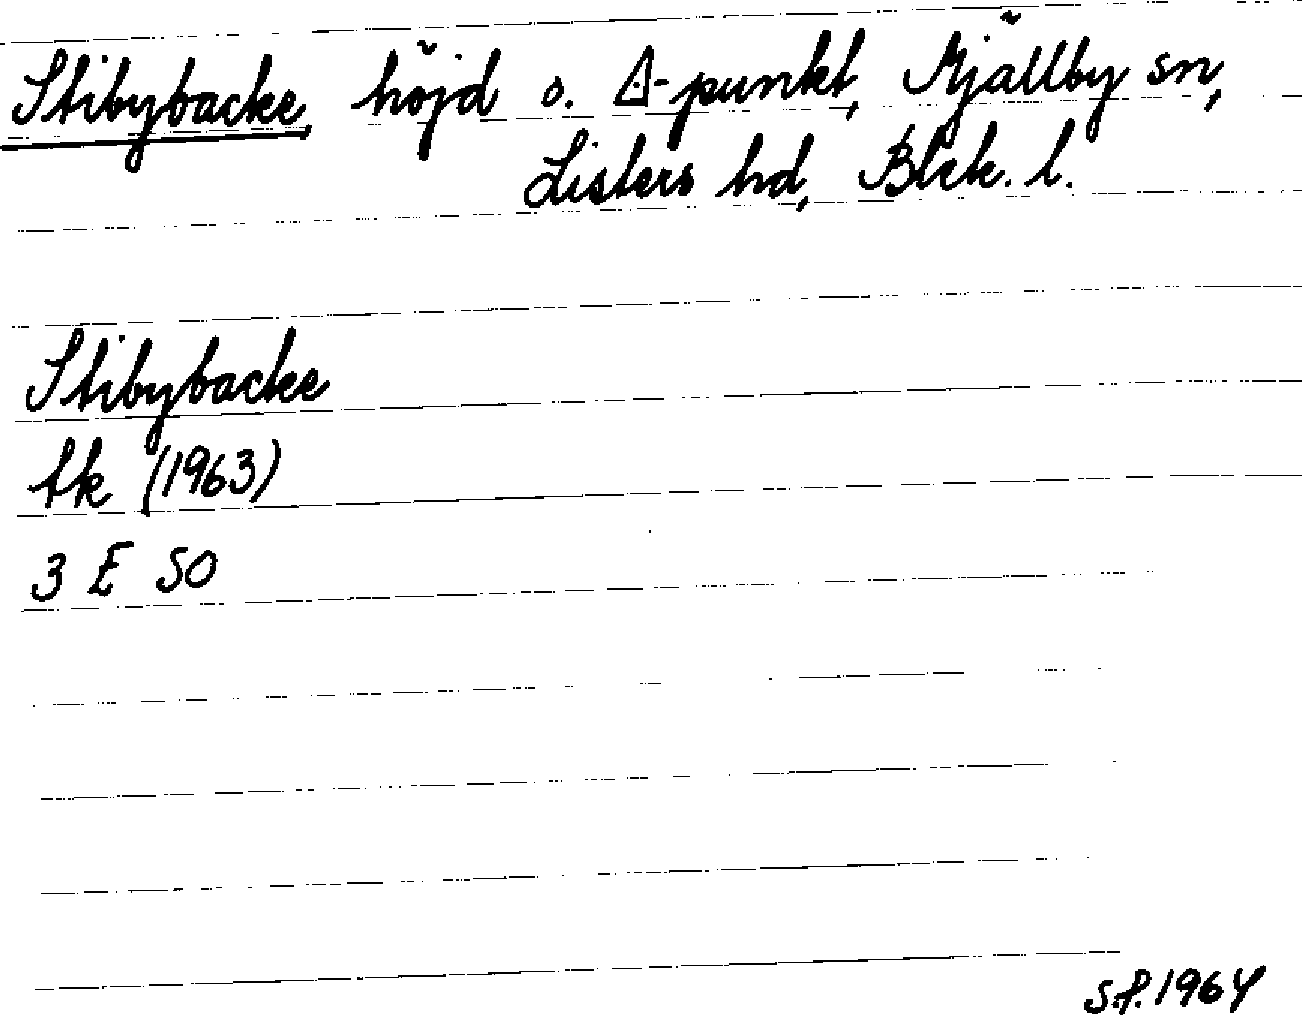 Stibybacke, höjd o. Δ-punkt, Mjällby sn,
Listers hd, Blek. l.
Stibybacke
tk (1963)
3 E SO
S.f. 1964